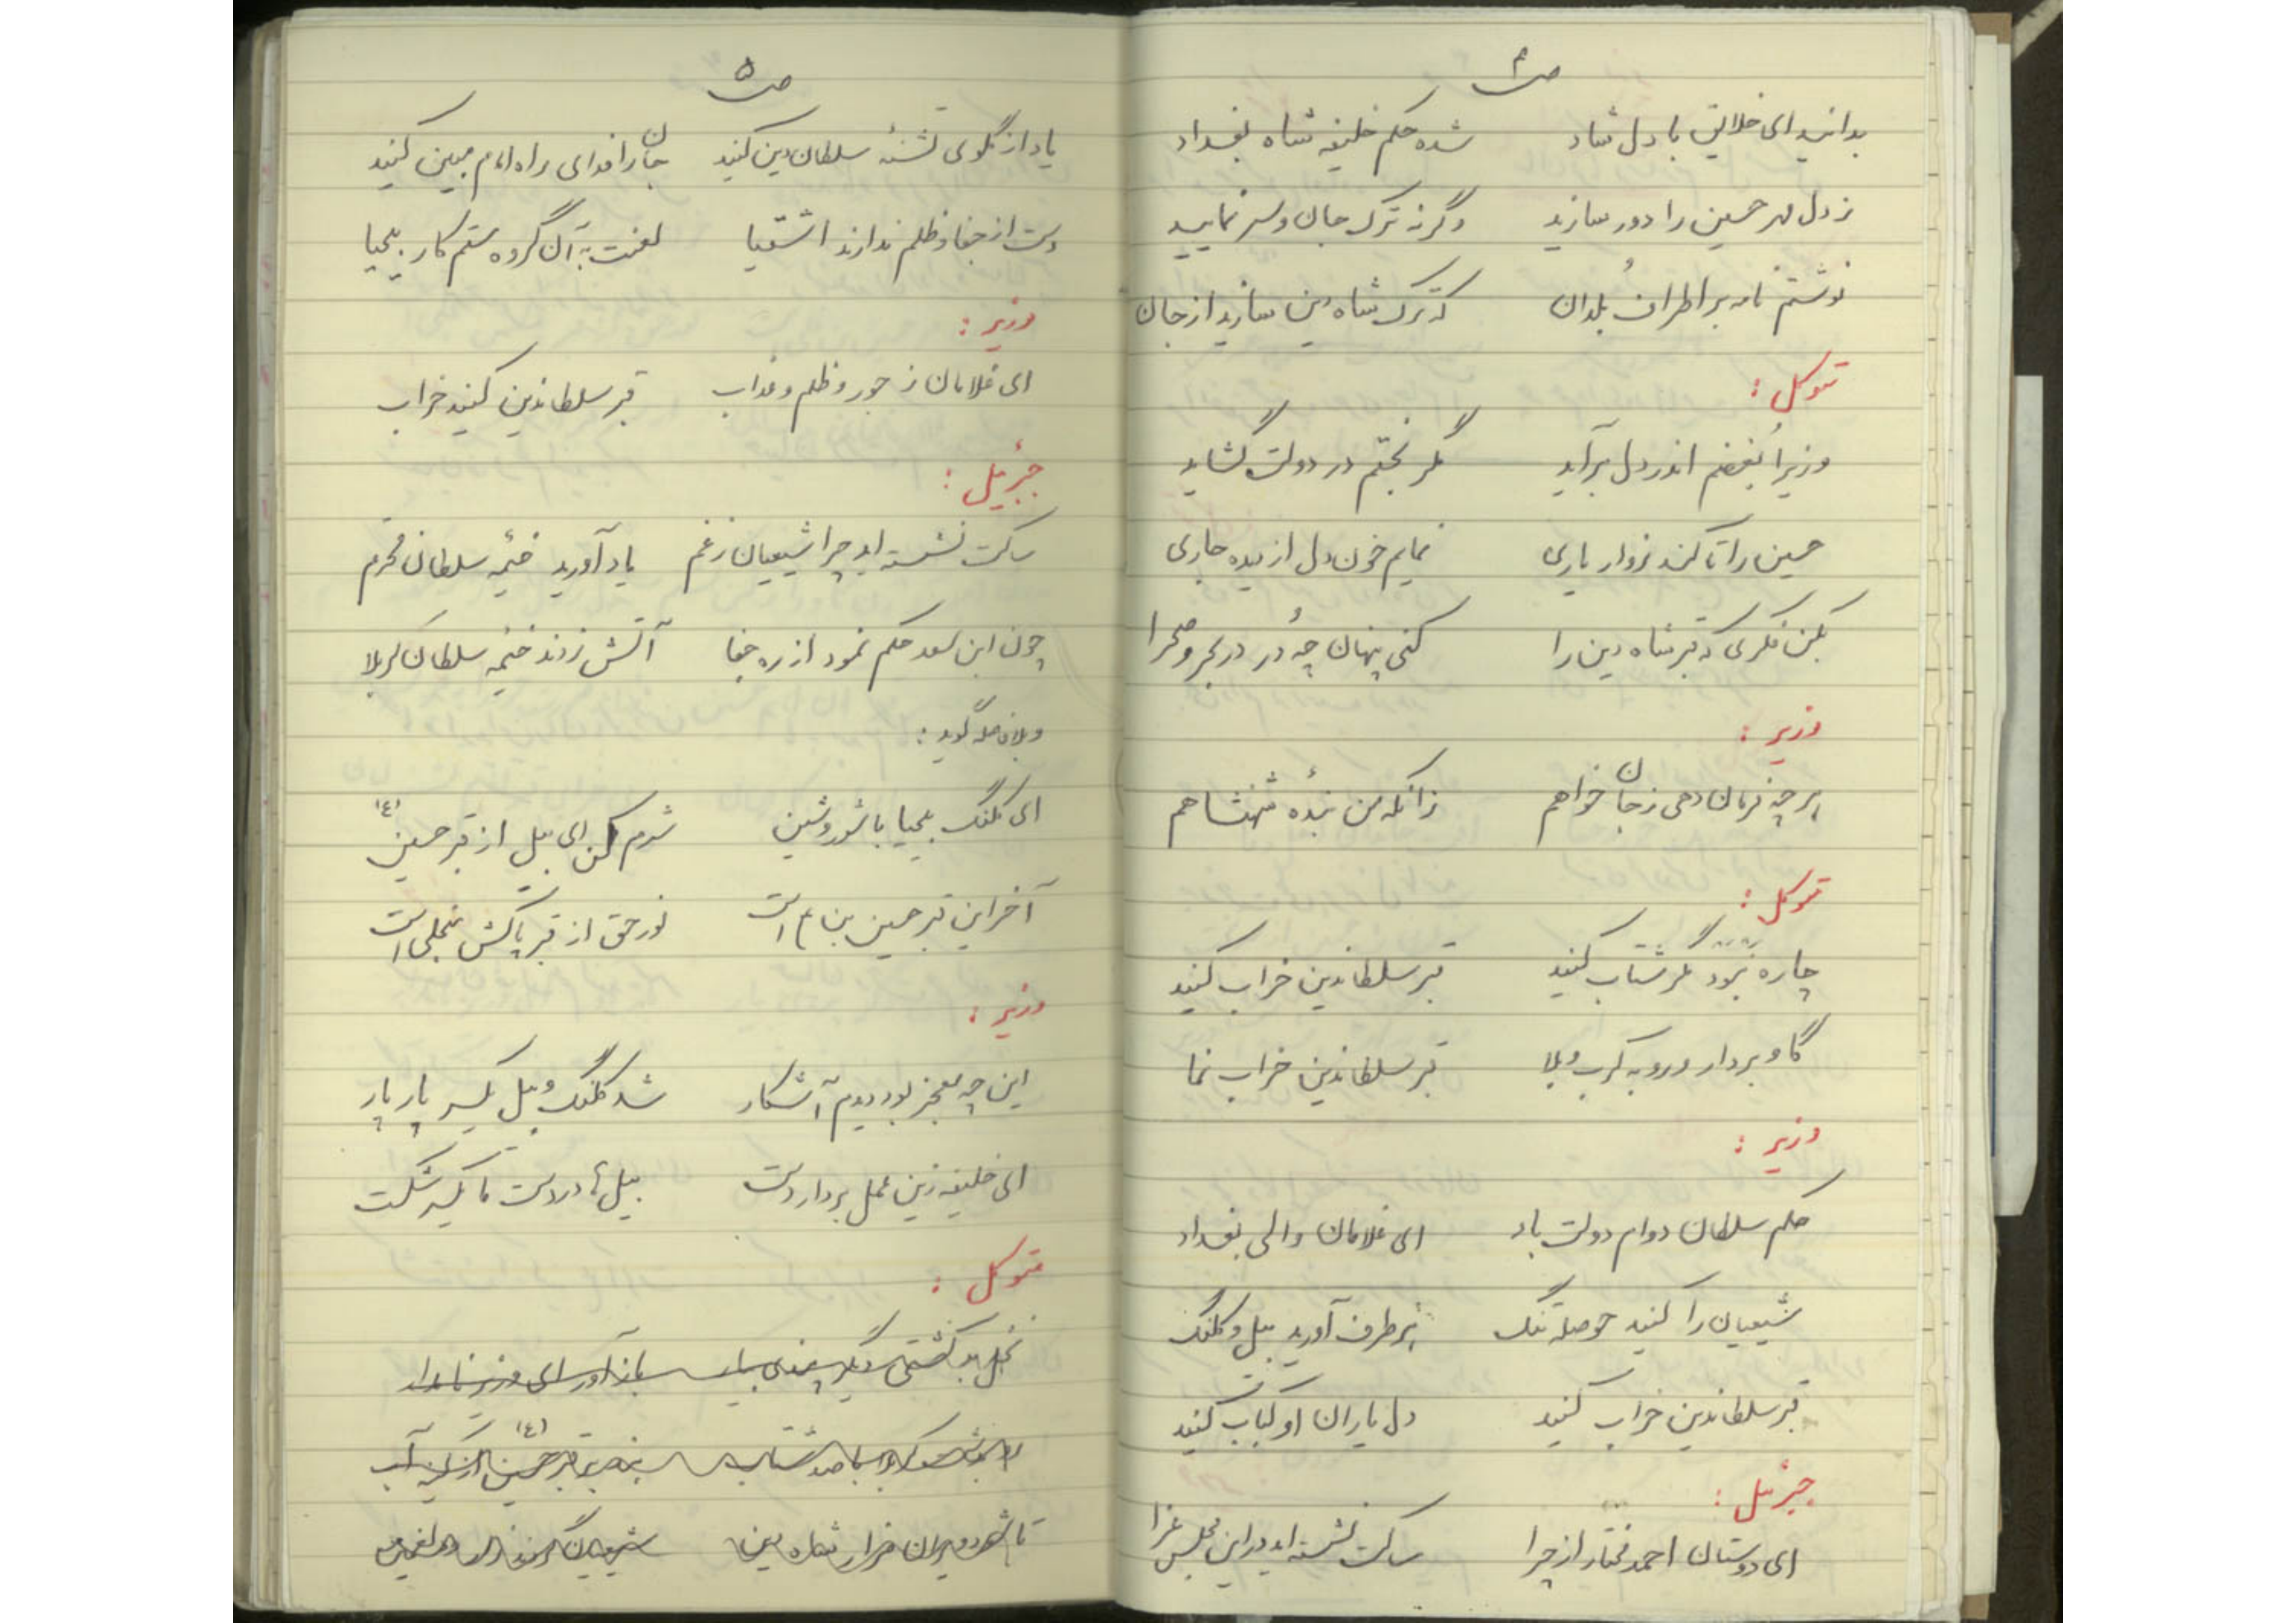 ص ۴
بدانید ای خلایق با دل شاد شده حکم خلیفه شاه بغداد
ز دل مهر حسین را دور سازید وگرنه ترک جان و سر نمایید
نوشتم نامه بر اطراف بلدان که ترک شاه دین سازید از جان
متوکل :
وزیرا بغضم اندر دل برآید مگر بختم در دولت گشاید
حسین را تا کند زوار یاری نمایم خون دل از دیده جاری
بکن فکری که قبر شاه دین را کنی پنهان چه دُر در بحر و صحرا
وزیر :
هر چه فرمان دهی ز جان خواهم زانکه من بندهٔ شهنشاهم
متوکل :
چاره نبود مگر شتاب کنید قبر سلطاندین خراب کنید
گاو بردار و رو به کرب و بلا قبر سلطاندین خراب نما
وزیر :
حکم سلطان دوام دولت باد ای غلامان والی بغداد
شیعیان را کنید حوصله تنگ هر طرف آورید بیل و کلنگ
قبر سلطاندین خراب کنید دل یاران او کباب کنید
جبرئیل :
ای دوستان احمد مختار از چرا ساکت نشسته اید در این مجلس عزا
ص ۵
یاد از گلوی تشنهٔ سلطان دین کنید جان را فدای راه امام مبین کنید
دست از جفا و ظلم ندارند اشقیا لعنت به آن گروه ستم کار بیحیا
وزیر :
ای غلامان ز جور و ظلم و عذاب قبر سلطاندین کنید خراب
جبرئیل :
ساکت نشسته اید چرا شیعیان ز غم یاد آورید خیمه سلطان محرم
چون ابن سعد حکم نمود از ره جفا آتش زدند خیمه سلطان کربلا
و بلافاصله گوید :
ای کلنگ بیحیا با شور و شین شرم کن ای بیل از قبر حسین (ع)
آخر این قبر حسین بن ع است نور حق از قبر پاکش منجلی است
وزیر :
این چه معجز بود دیدم آشکار شد کلنگ و بیل یکسر پار پار
ای خلیفه زین عمل بردار دست بیل ها در دست ما یکسر شکست
متوکل :
دیگر باز آور ای وزیر نامدار
با صد شتاب بر قبر حسین (ع) آب
تا شود ویران مزار شاه دین شیعیان